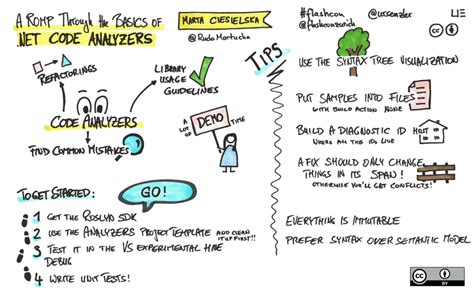 A ROMP THROUGH THE BASICS OF
.NET CODE ANALYZERS
MARTA CIESIELSKA
@RudaMortucha
#flashcon
@flashconzurich
@ursenzler
REFACTORINGS
LIBRARY
USAGE
GUIDELINES
CODE ANALYZERS
FIND COMMON MISTAKES
A LOT OF
DEMO
TIME
TO GET STARTED:
GO!
1 GET THE ROSLYN SDK
2 USE THE ANALYZERS PROJECT TEMPLATE AND CLEAN IT UP FIRST!!
3 TEST IT IN THE VS EXPERIMENTAL HIVE
DEBUG
4 WRITE UNIT TESTS!
TIPS
USE THE SYNTAX TREE VISUALIZATION
PUT SAMPLES INTO FILES
WITH BUILD ACTION NONE
BUILD A DIAGNOSTIC ID HOST
WHERE ALL THE IDs LIVE
ID
A FIX SHOULD ONLY CHANGE
THINGS IN ITS SPAN!
OTHERWISE YOU'LL GET CONFLICTS!
EVERYTHING IS IMMUTABLE
PREFER SYNTAX OVER SEMANTIC MODEL
CC
BY